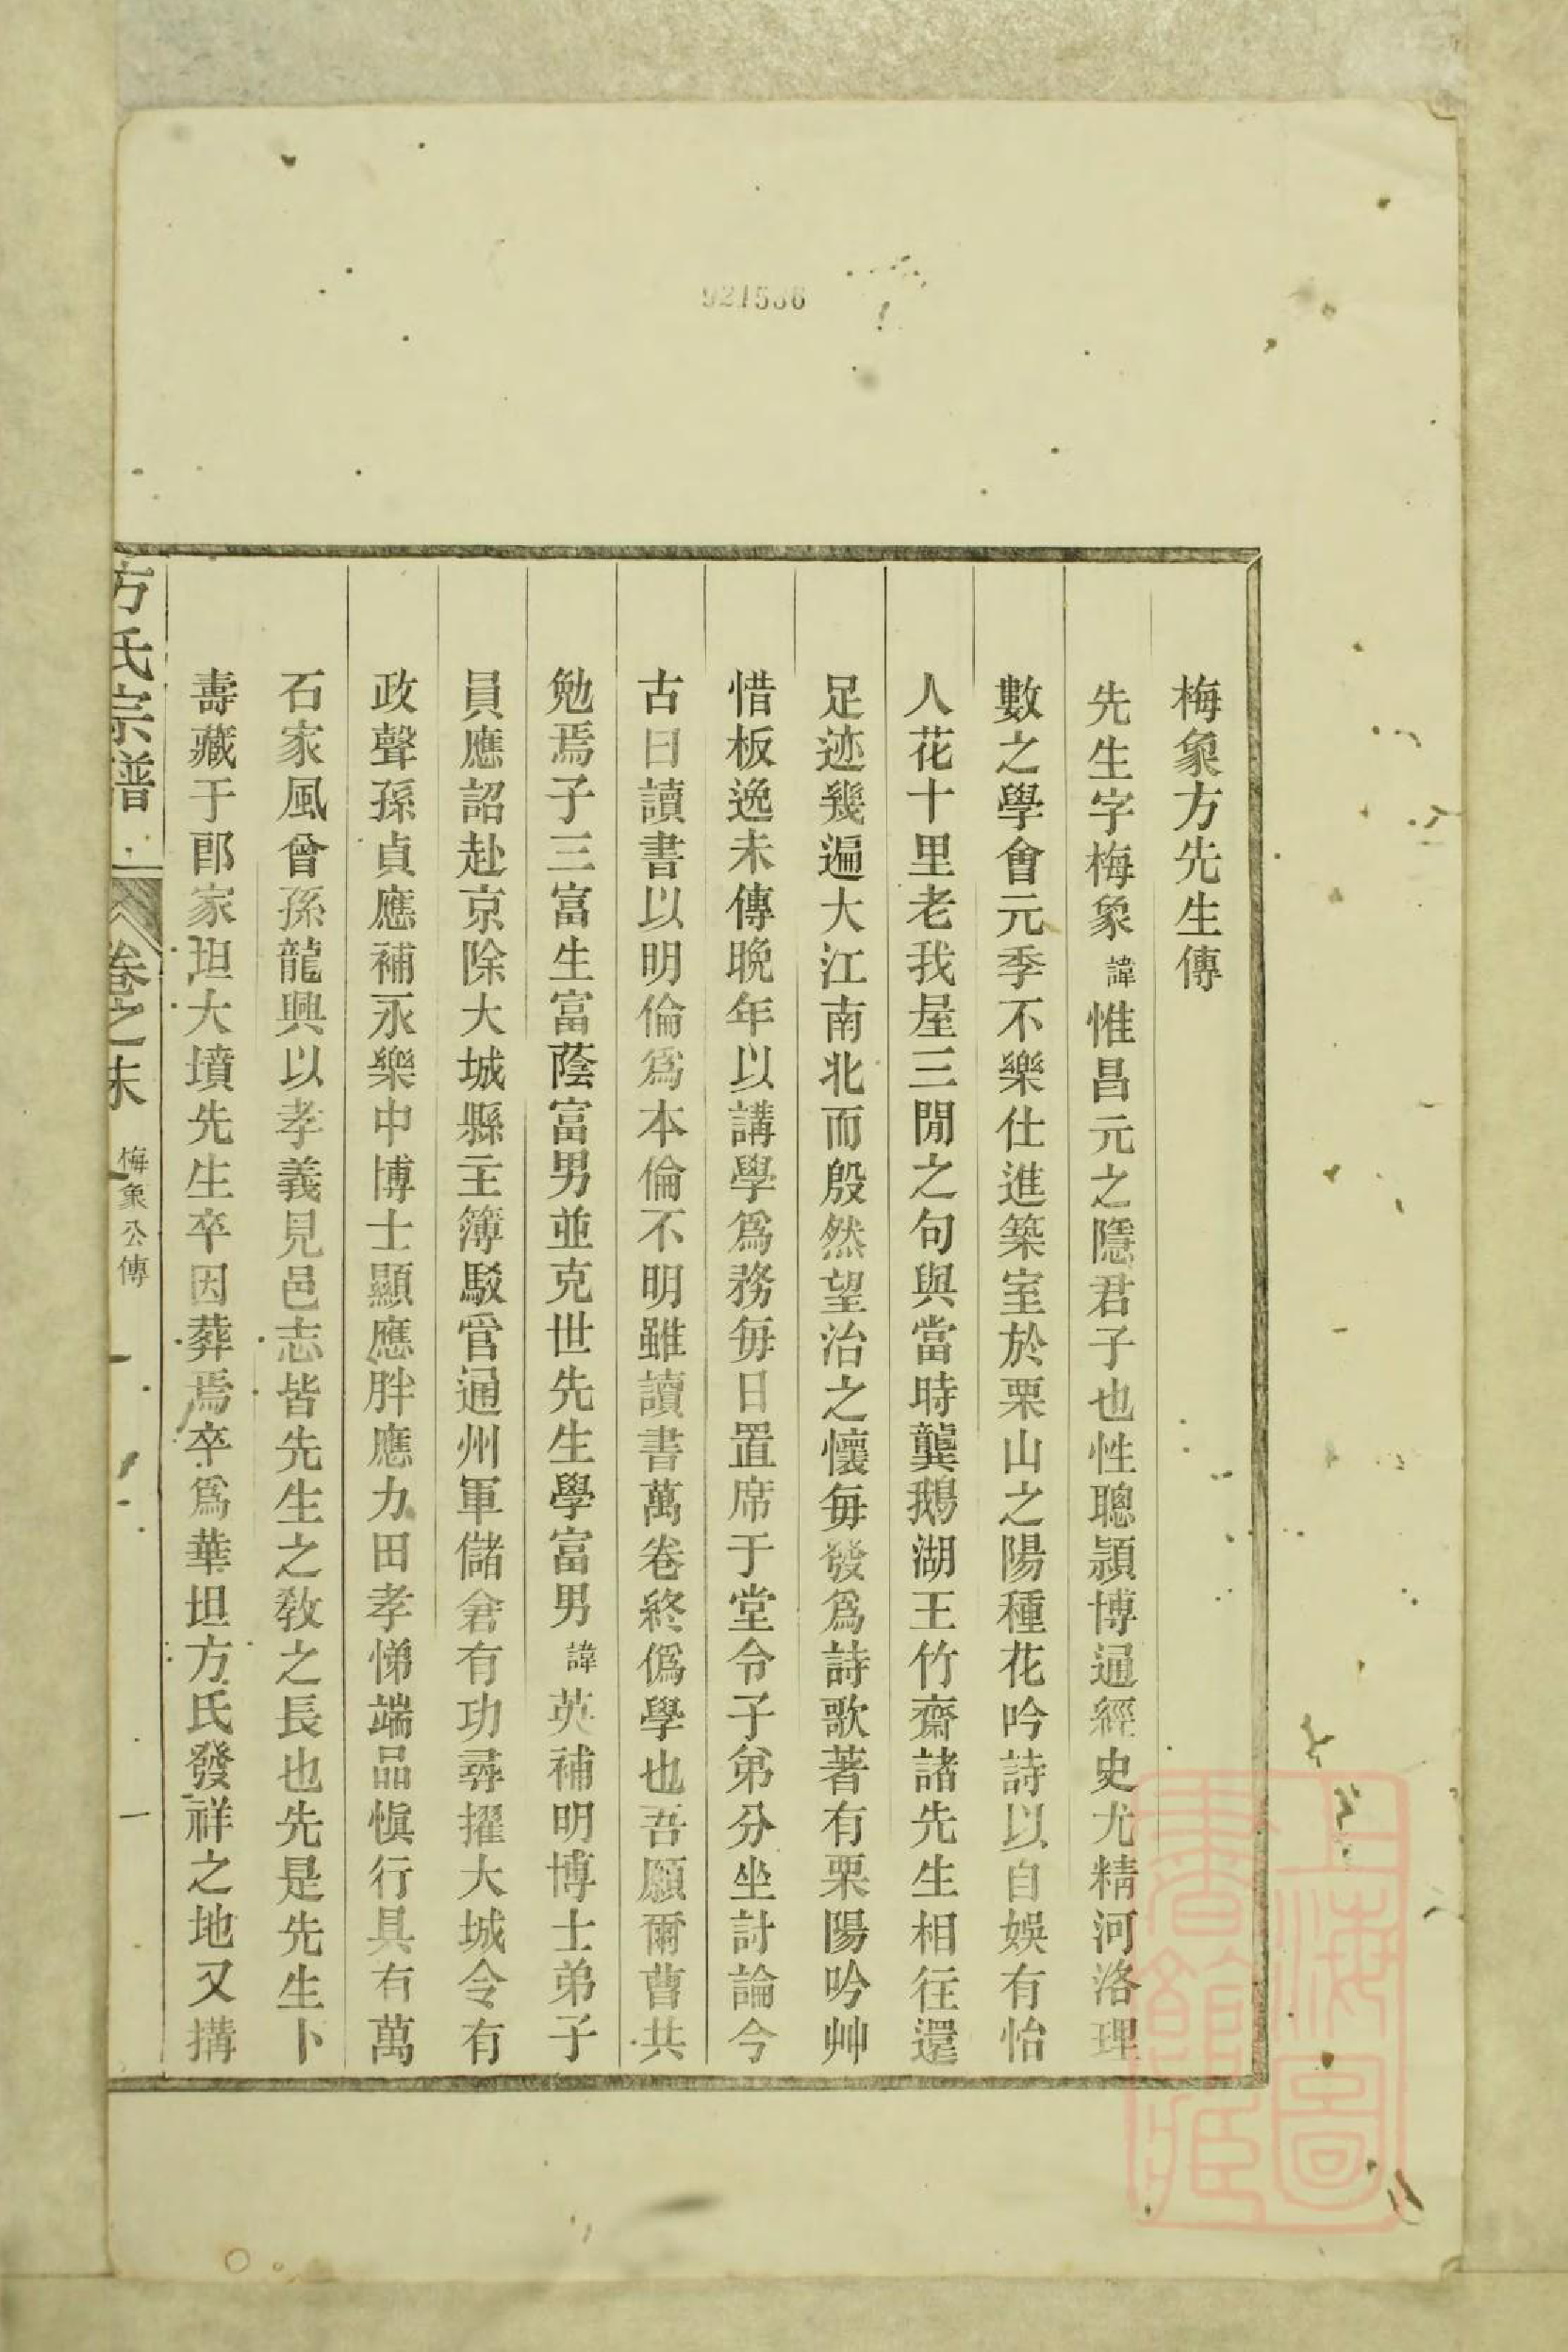 梅象方先生傳
先生字梅象諱惟昌元之隱君子也性聰潁博通經史尤精河洛理
數之學會元季不樂仕進築室於栗山之陽種花吟詩以自娛有怡
人花十里老我屋三閒之句與當時龔鵝湖王竹齋諸先生相往還
足迹幾遍大江南北而殷然望治之懷每發爲詩歌著有栗陽吟艸
惜板逸未傳晚年以講學爲務每日置席于堂令子弟分坐討論今
古曰讀書以明倫爲本倫不明雖讀書萬卷終僞學也吾願爾曹共
勉焉子三富生富蔭富男並克世先生學富男諱英補明博士弟子
員應詔赴京除大城縣主簿駁管通州軍儲倉有功尋擢大城令有
政聲孫貞應補永樂中博士顯應胖應力田孝悌端品愼行具有萬
石家風曾孫龍興以孝義見邑志皆先生之敎之長也先是先生卜
壽藏于郎家坦大墳先生卒因葬焉卒爲華坦方氏發祥之地又搆
方氏宗譜
卷之末
梅象公傳
一
921536
上海圖
書館藏